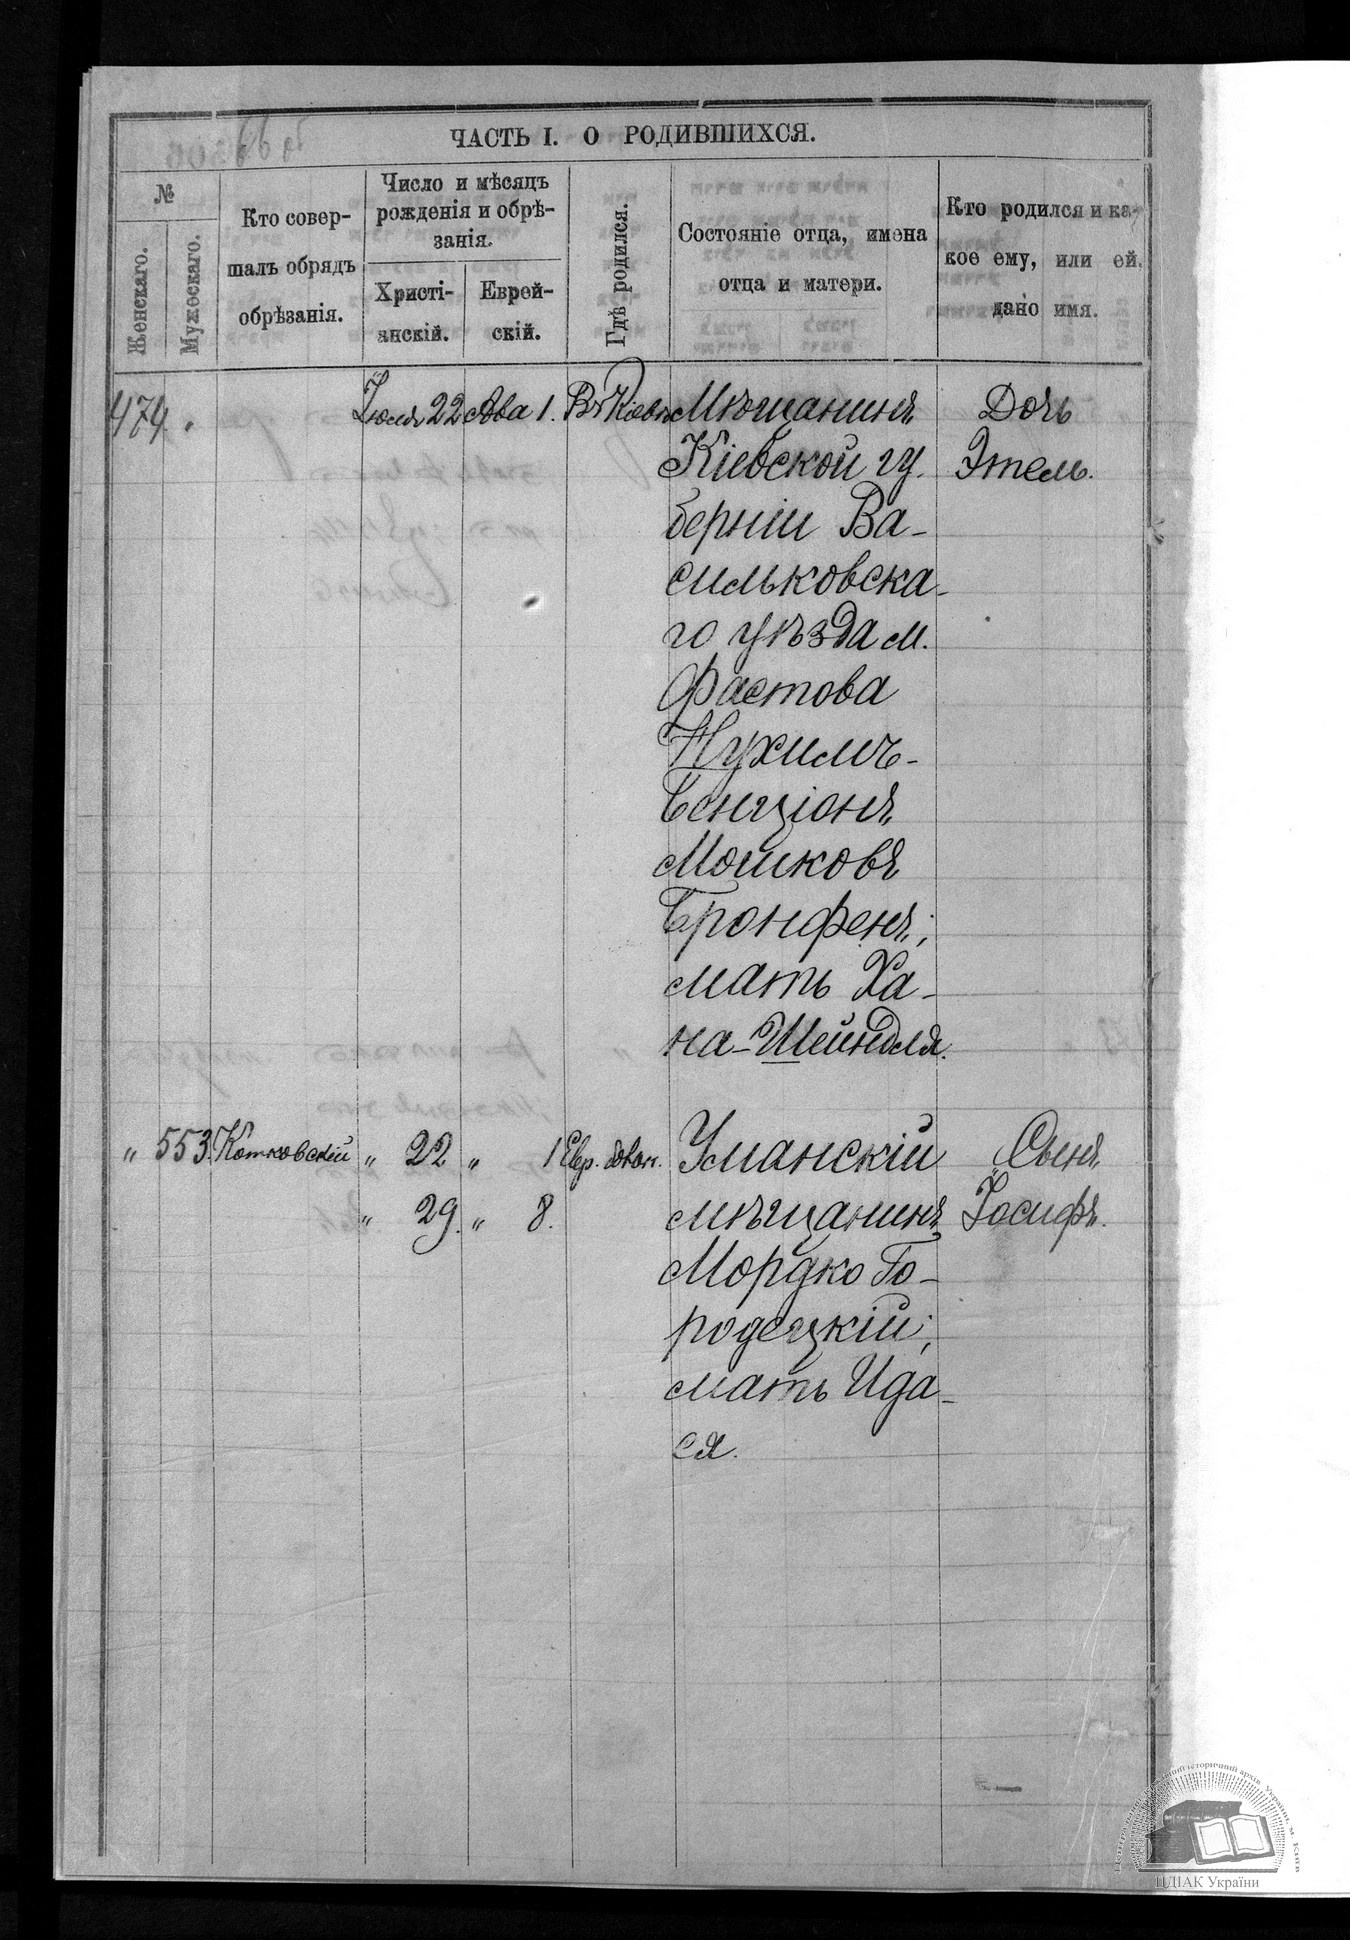 ЧАСТЬ I. О РОДИВШИХСЯ.
№
Женскаго.
Мужескаго.
Кто совер-
шалъ обрядъ
обрѣзанія.
Число и мѣсяцъ
рожденія и обрѣ-
занія.
Христі-
анскій.
Еврей-
скій.
Гдѣ родился.
Состояніе отца, имена
отца и матери.
Кто родился и ка-
кое ему, или ей,
дано имя.
474. Іюля 22 Ава 1. Въ Кіевѣ Мѣщанинъ Дочь
Кіевской гу- Этель.
берніи Ва-
сильковска-
го уѣзда м.
Фастова
Нухимъ-
Бенціонъ
Мошковъ
Бронфенъ;
мать Ха-
на-Шейндля.
" 553 Котковскій " 22 " 1 Евр. больн. Уманскій Сынъ
" 29. " 8. мѣщанинъ Іосифъ.
Мордко Го-
родецкій;
мать Ида-
ся.
ЦДІАК України